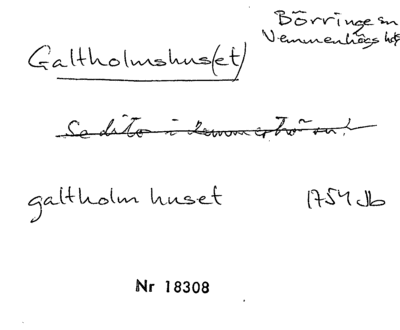 Börringe sn
Vemmenhögs hd
Galtholmshus(et)
Se dito i Lemmeströ sn!
galtholm huset 1754 Jb
Nr 18308